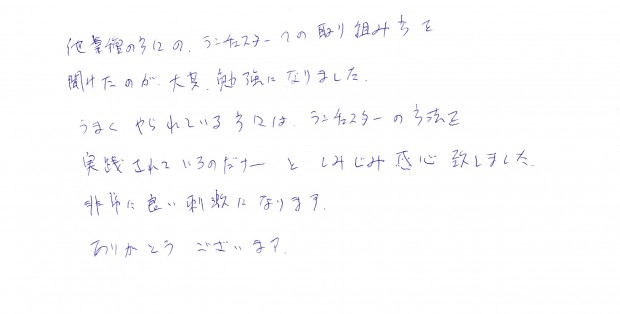 他業種の方々の、ランチェスターへの取り組み方を
聞けたのが、大変、勉強になりました。
うまくやられている方々は、ランチェスターの方法を
実践されているのだナーと しみじみ感心致しました。
非常に良い刺激になります。
ありがとうございます。